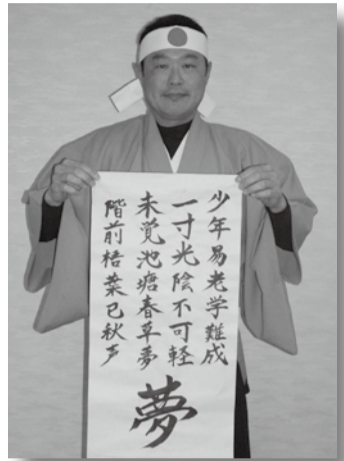 少年易老学難成
一寸光陰不可軽
未覚池塘春草夢
階前梧葉已秋声
夢